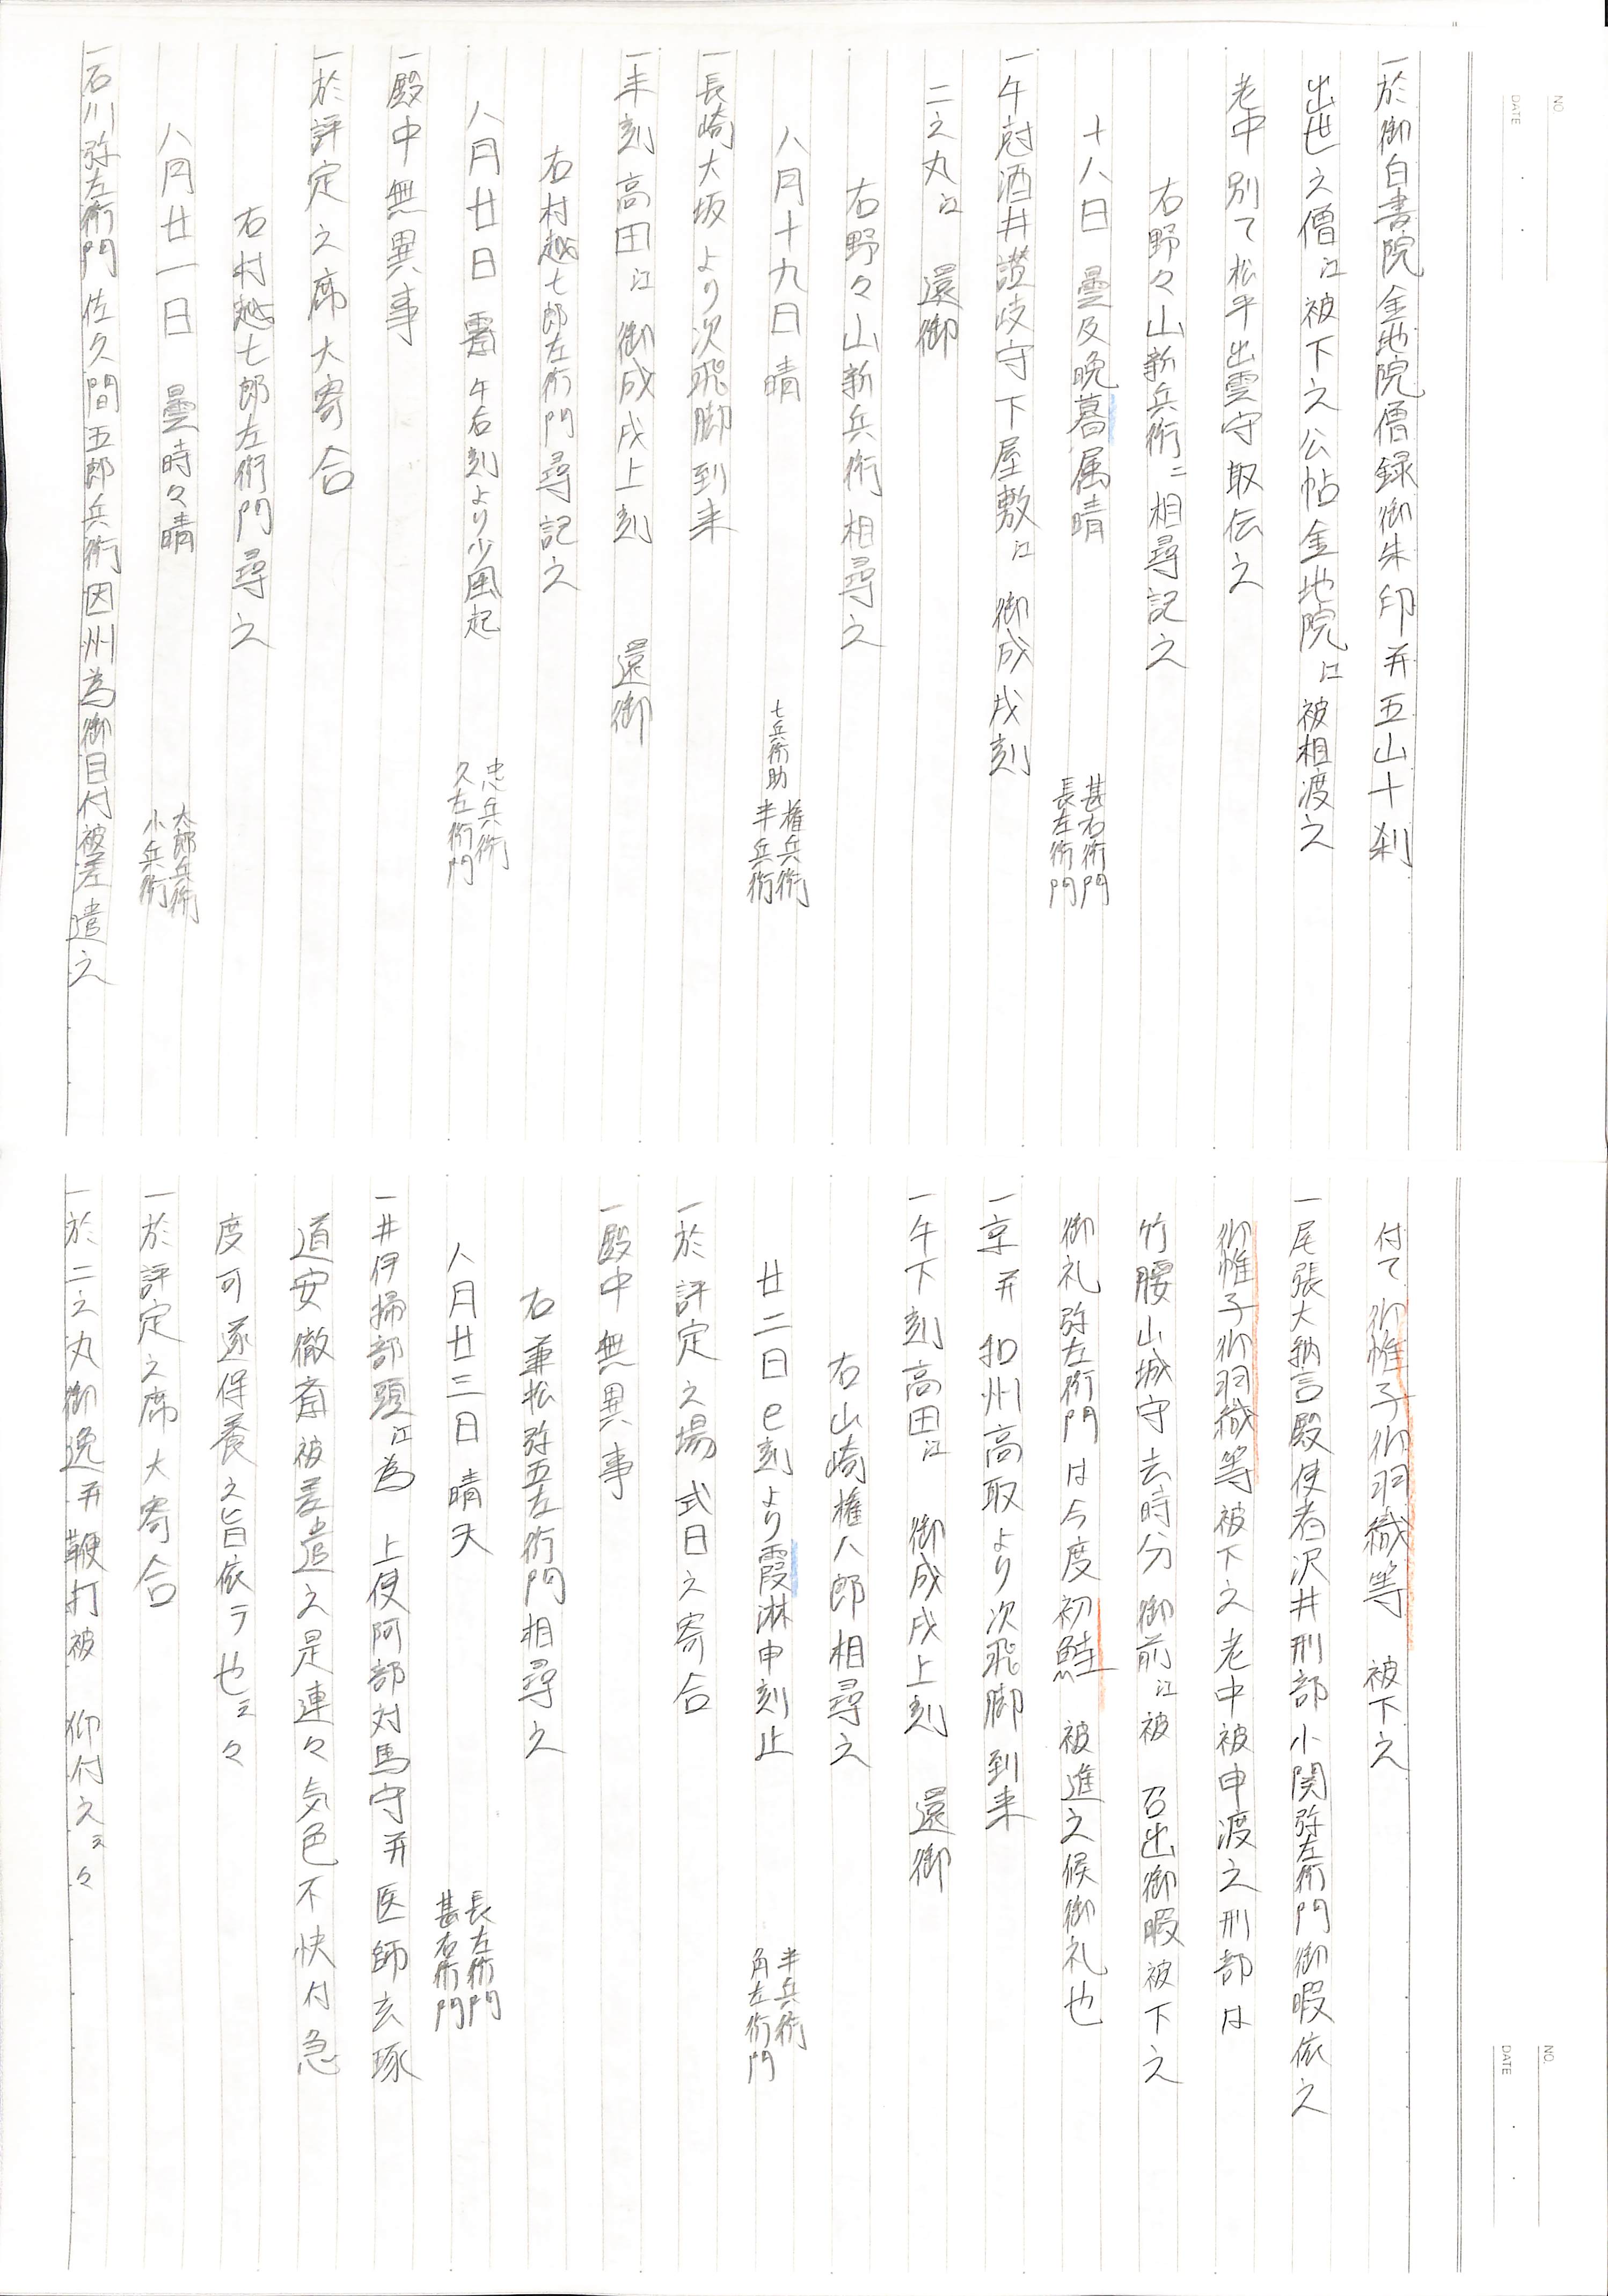 NO
DATE
一於御白書院金地院僧録御朱印并五山十刹
出世之僧江被下之公帖金地院江被相渡之
老中別て松平出雲守取伝之
右野々山新兵衛ニ相尋記之
十八日 曇及晩暮属晴 甚右衛門 長左衛門
一午刻酒井讃岐守下屋敷江 御成戌刻
二之丸江 還御
右野々山新兵衛相尋之
八月十九日晴 七兵衛助 権兵衛 半兵衛
一長崎大坂より次飛脚到来
一未刻高田江 御成戌上刻 還御
右村越七郎左衛門尋記之
八月廿日 曇午右刻より少風起 忠兵衛 久左衛門
一殿中無異事
一於評定之席大寄合
右村越七郎左衛門尋之
八月廿一日 曇時々晴 太郎兵衛 小兵衛
一石川弥左衛門佐久間五郎兵衛因州為御目付被差遣之
NO.
DATE
付て御帷子御羽織等 被下之
一尾張大納言殿使者沢井刑部小関弥左衛門御暇依之
御帷子御羽織等被下之老中被申渡之刑部は
竹腰山城守去時分 御前江被 召出御暇被下之
御礼弥左衛門は今度初鮭 被進之候御礼也
一京并和州高取より次飛脚到来
一午下刻高田江 御成戌上刻 還御
右山崎権八郎相尋之
廿二日e刻より霞淋申刻止 半兵衛 角左衛門
一於評定之場式日之寄合
一殿中無異事
右兼松弥五左衛門相尋之
八月廿三日 晴天 長左衛門 甚右衛門
一井伊掃部頭江為 上使阿部対馬守并医師玄琢
道安徹斎被差遣之是連々気色不快付急
度可遂保養之旨依テ也云々
一於評定之席大寄合
一於二之丸御逸并鞭打被 仰付之云々